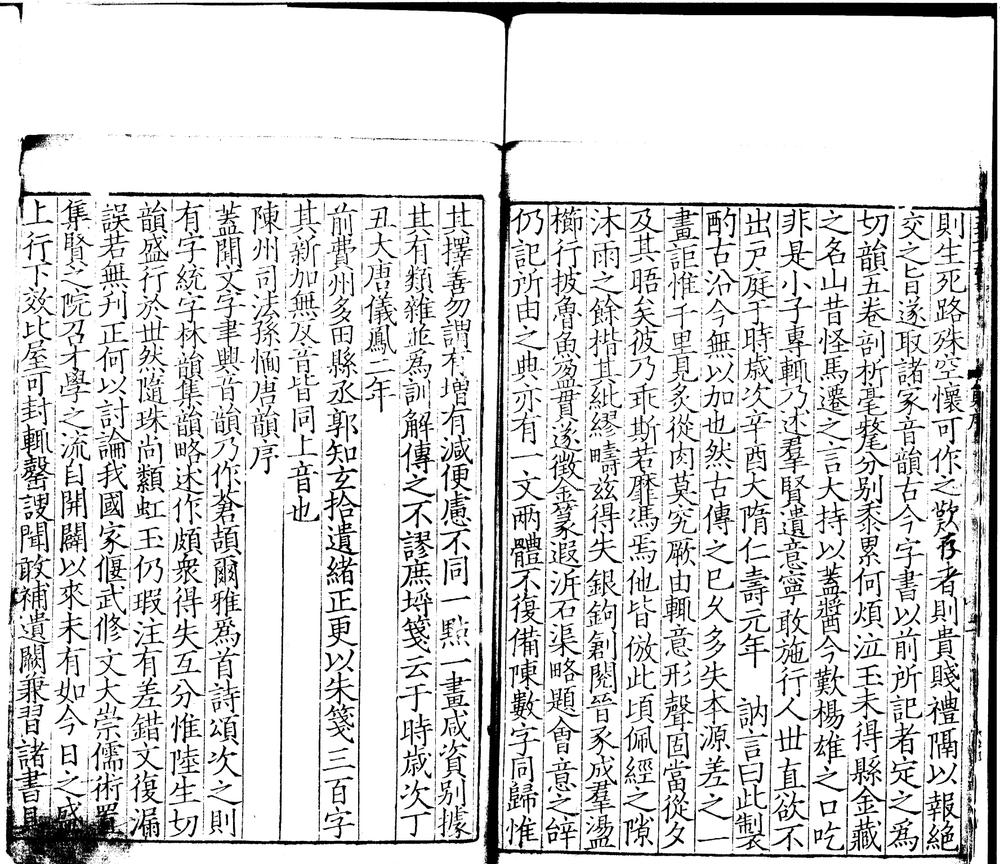 則生死路殊空懷可作之歎存者則貴賤禮隔以報絕
交之旨遂取諸家音韻古今字書以前所記者定之爲
切韻五卷剖析毫氂分別黍累何煩泣玉未得縣金藏
之名山昔怪馬遷之言大持以蓋醬今歎楊雄之口吃
非是小子專輒乃述羣賢遺意寧敢施行人世直欲不
出戶庭于時歲次辛酉大隋仁壽元年　訥言曰此製
酌古沿今無以加也然古傳之已久多失本源差之一
畫詎惟千里見炙從肉莫究厥由輒意形聲固當從夕
及其晤矣彼乃乖斯若靡馮焉他皆倣此頃佩經之隙
沐雨之餘揩其紕繆疇茲得失銀鉤創閱晉豕成羣盪
櫛行披魯魚盈貫遂徵金篆遐泝石渠略題會意之辝
仍記所由之典亦有一文兩體不復備陳數字同歸惟
其擇善勿謂有增有減便慮不同一點一畫咸資別據
其有類雜並爲訓解傳之不謬庶埒箋云于時歲次丁
丑大唐儀鳳二年
前費州多田縣丞郭知玄拾遺緒正更以朱箋三百字
其新加無反音皆同上音也
陳州司法孫愐唐韻序
蓋聞文字聿興音韻乃作蒼頡爾雅爲首詩頌次之則
有字統字林韻集韻略述作頗衆得失互分惟陸生切
韻盛行於世然隨珠尚纇虹玉仍瑕注有差錯文復漏
誤若無刋正何以討論我國家偃武修文大崇儒術置
集賢之院召才學之流自開闢以來未有如今日之盛
上行下效比屋可封輒罄謏聞敢補遺闕兼習諸書具